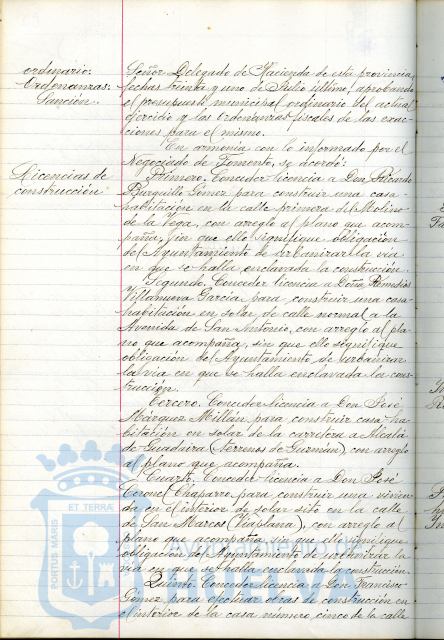 ordinario:
Ordenanzas:
Sanción.
Señor Delegado de Hacienda de esta provincia,
fechas treinta y uno de Julio último, aprobando
el presupuesto municipal ordinario del actual
ejercicio y las ordenanzas fiscales de las exac-
ciones para el mismo.
En armonía con lo informado por el
Negociado de Fomento, se acordó:
Licencias de
construcción:
Primero. Conceder licencia a Don Ricardo
Burguillo Gómez para construir una casa-
habitación en la calle primera del Molino
de la Vega, con arreglo al plano que acom-
paña, sin que ello signifique obligación
del Ayuntamiento de urbanizar la vía
en que se halla enclavada la construcción.
Segundo. Conceder licencia a Doña Remedios
Villanueva García para construir una casa-
habitación en solar de calle normal a la
Avenida de San Antonio, con arreglo al pla-
no que acompaña, sin que ello signifique
obligación del Ayuntamiento de urbanizar
la vía en que se halla enclavada la cons-
trucción.
Tercero. Conceder licencia a Don José
Márquez Millán para construir casa-ha-
bitación en solar de la carretera a Alcalá
de Guadaira (Terrenos de Guzmán), con arreglo
al plano que acompaña.
Cuarto. Conceder licencia a Don José
Coronel Chaparro para construir una vivien-
da en el interior de solar sito en la calle
de San Marcos (Viaplana), con arreglo al
plano que acompaña sin que ello signifique
obligación del Ayuntamiento de urbanizar la
vía en que se halla enclavada la construcción.
Quinto. Conceder licencia a Don Francisco
Gómez para efectuar obras de construcción en
el interior de la casa número cinco de la calle
PORTUS MARIS
ET TERRÆ